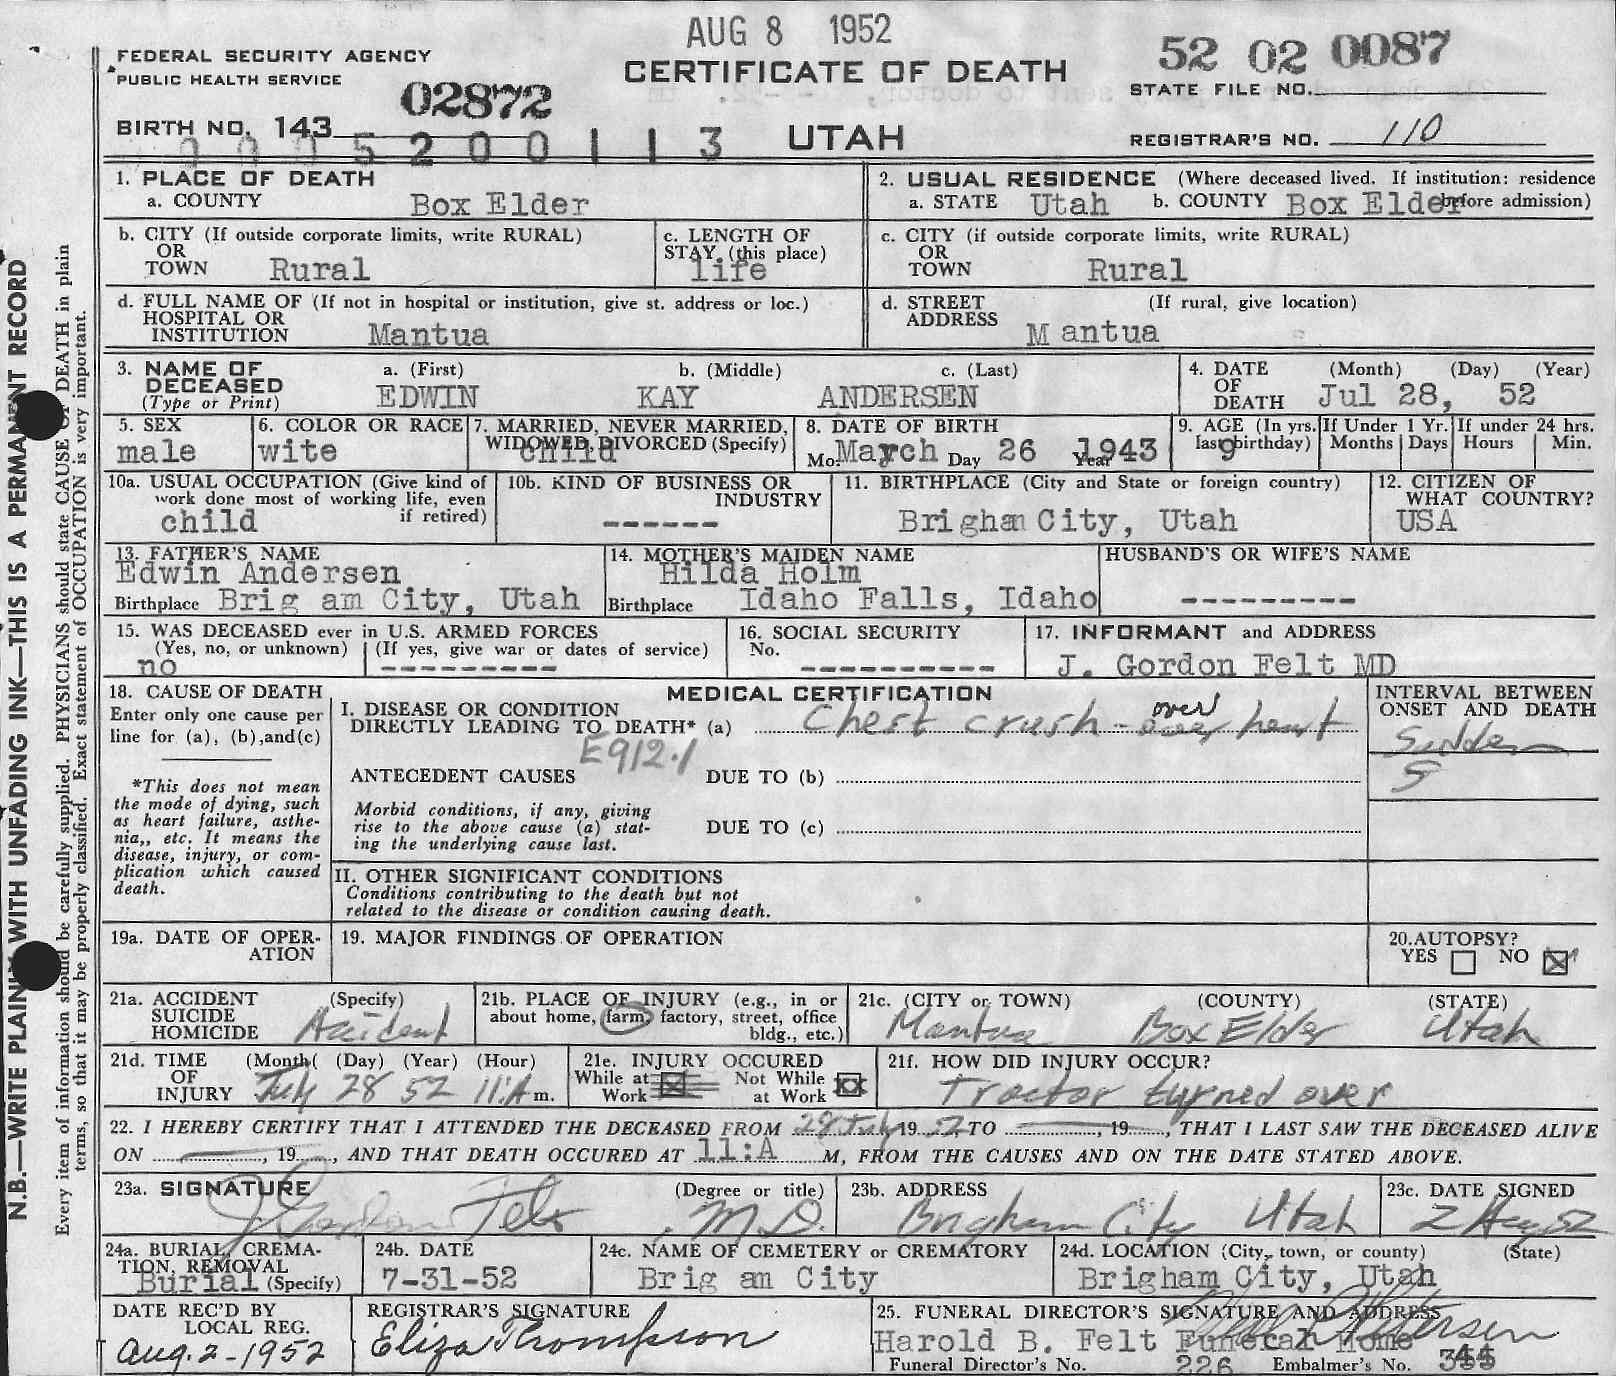 AUG 8 1952
FEDERAL SECURITY AGENCY
PUBLIC HEALTH SERVICE
CERTIFICATE OF DEATH
52 02 0087
STATE FILE NO.
02872
BIRTH NO. 143
0005200113
UTAH
REGISTRAR'S NO. 110
1. PLACE OF DEATH
a. COUNTY Box Elder
2. USUAL RESIDENCE (Where deceased lived. If institution: residence before admission)
a. STATE Utah b. COUNTY Box Elder
b. CITY (If outside corporate limits, write RURAL)
OR
TOWN Rural
c. LENGTH OF
STAY (this place)
life
c. CITY (if outside corporate limits, write RURAL)
OR
TOWN Rural
d. FULL NAME OF (If not in hospital or institution, give st. address or loc.)
HOSPITAL OR
INSTITUTION Mantua
d. STREET (If rural, give location)
ADDRESS M antua
3. NAME OF
DECEASED
(Type or Print)
a. (First) b. (Middle) c. (Last)
EDWIN KAY ANDERSEN
4. DATE (Month) (Day) (Year)
OF
DEATH Jul 28, 52
5. SEX
male
6. COLOR OR RACE
wite
7. MARRIED, NEVER MARRIED,
WIDOWED, DIVORCED (Specify)
child
8. DATE OF BIRTH
Mo. March Day 26 Year 1943
9. AGE (In yrs. last birthday)
9
If Under 1 Yr.
Months Days
If under 24 hrs.
Hours Min.
10a. USUAL OCCUPATION (Give kind of
work done most of working life, even
if retired)
child
10b. KIND OF BUSINESS OR
INDUSTRY
------
11. BIRTHPLACE (City and State or foreign country)
Brigham City, Utah
12. CITIZEN OF
WHAT COUNTRY?
USA
13. FATHER'S NAME
Edwin Andersen
Birthplace Brig am City, Utah
14. MOTHER'S MAIDEN NAME
Hilda Holm
Birthplace Idaho Falls, Idaho
HUSBAND'S OR WIFE'S NAME
---------
15. WAS DECEASED ever in U.S. ARMED FORCES
(Yes, no, or unknown) (If yes, give war or dates of service)
no ---------
16. SOCIAL SECURITY
No. ----------
17. INFORMANT and ADDRESS
J. Gordon Felt MD
18. CAUSE OF DEATH
Enter only one cause per
line for (a), (b), and (c)
*This does not mean
the mode of dying, such
as heart failure, asthe-
nia,, etc. It means the
disease, injury, or com-
plication which caused
death.
MEDICAL CERTIFICATION
I. DISEASE OR CONDITION
DIRECTLY LEADING TO DEATH* (a) Chest crush - over heart
over
E912.1
ANTECEDENT CAUSES DUE TO (b)
Morbid conditions, if any, giving
rise to the above cause (a) stat-
ing the underlying cause last.
DUE TO (c)
INTERVAL BETWEEN
ONSET AND DEATH
Sudden
5
II. OTHER SIGNIFICANT CONDITIONS
Conditions contributing to the death but not
related to the disease or condition causing death.
19a. DATE OF OPER-
ATION
19. MAJOR FINDINGS OF OPERATION
20. AUTOPSY?
YES NO
21a. ACCIDENT (Specify)
SUICIDE
HOMICIDE Accident
21b. PLACE OF INJURY (e.g., in or
about home, farm, factory, street, office
bldg., etc.)
21c. (CITY or TOWN) (COUNTY) (STATE)
Mantua Box Elder Utah
21d. TIME (Month( (Day) (Year) (Hour)
OF
INJURY July 28 52 11:A m.
21e. INJURY OCCURED
While at Not While
Work at Work
21f. HOW DID INJURY OCCUR?
Tractor turned over
22. I HEREBY CERTIFY THAT I ATTENDED THE DECEASED FROM 28 July 19 52, TO , 19 , THAT I LAST SAW THE DECEASED ALIVE
ON , 19 , AND THAT DEATH OCCURED AT 11:A M, FROM THE CAUSES AND ON THE DATE STATED ABOVE.
23a. SIGNATURE (Degree or title)
J Gordon Felt, M.D.
23b. ADDRESS
Brigham City Utah
23c. DATE SIGNED
2 Aug 52
24a. BURIAL, CREMA-
TION, REMOVAL
Burial (Specify)
24b. DATE
7-31-52
24c. NAME OF CEMETERY or CREMATORY
Brig am City
24d. LOCATION (City, town, or county) (State)
Brigham City, Utah
DATE REC'D BY
LOCAL REG.
Aug. 2-1952
REGISTRAR'S SIGNATURE
Eliza Thompson
25. FUNERAL DIRECTOR'S SIGNATURE AND ADDRESS
Harold B. Felt Funeral Home
Funeral Director's No. 226 Embalmer's No.
N.B.—WRITE PLAINLY WITH UNFADING INK—THIS IS A PERMANENT RECORD
Every item of information should be carefully supplied. PHYSICIANS should state CAUSE OF DEATH in plain
terms, so that it may be properly classified. Exact statement of OCCUPATION is very important.